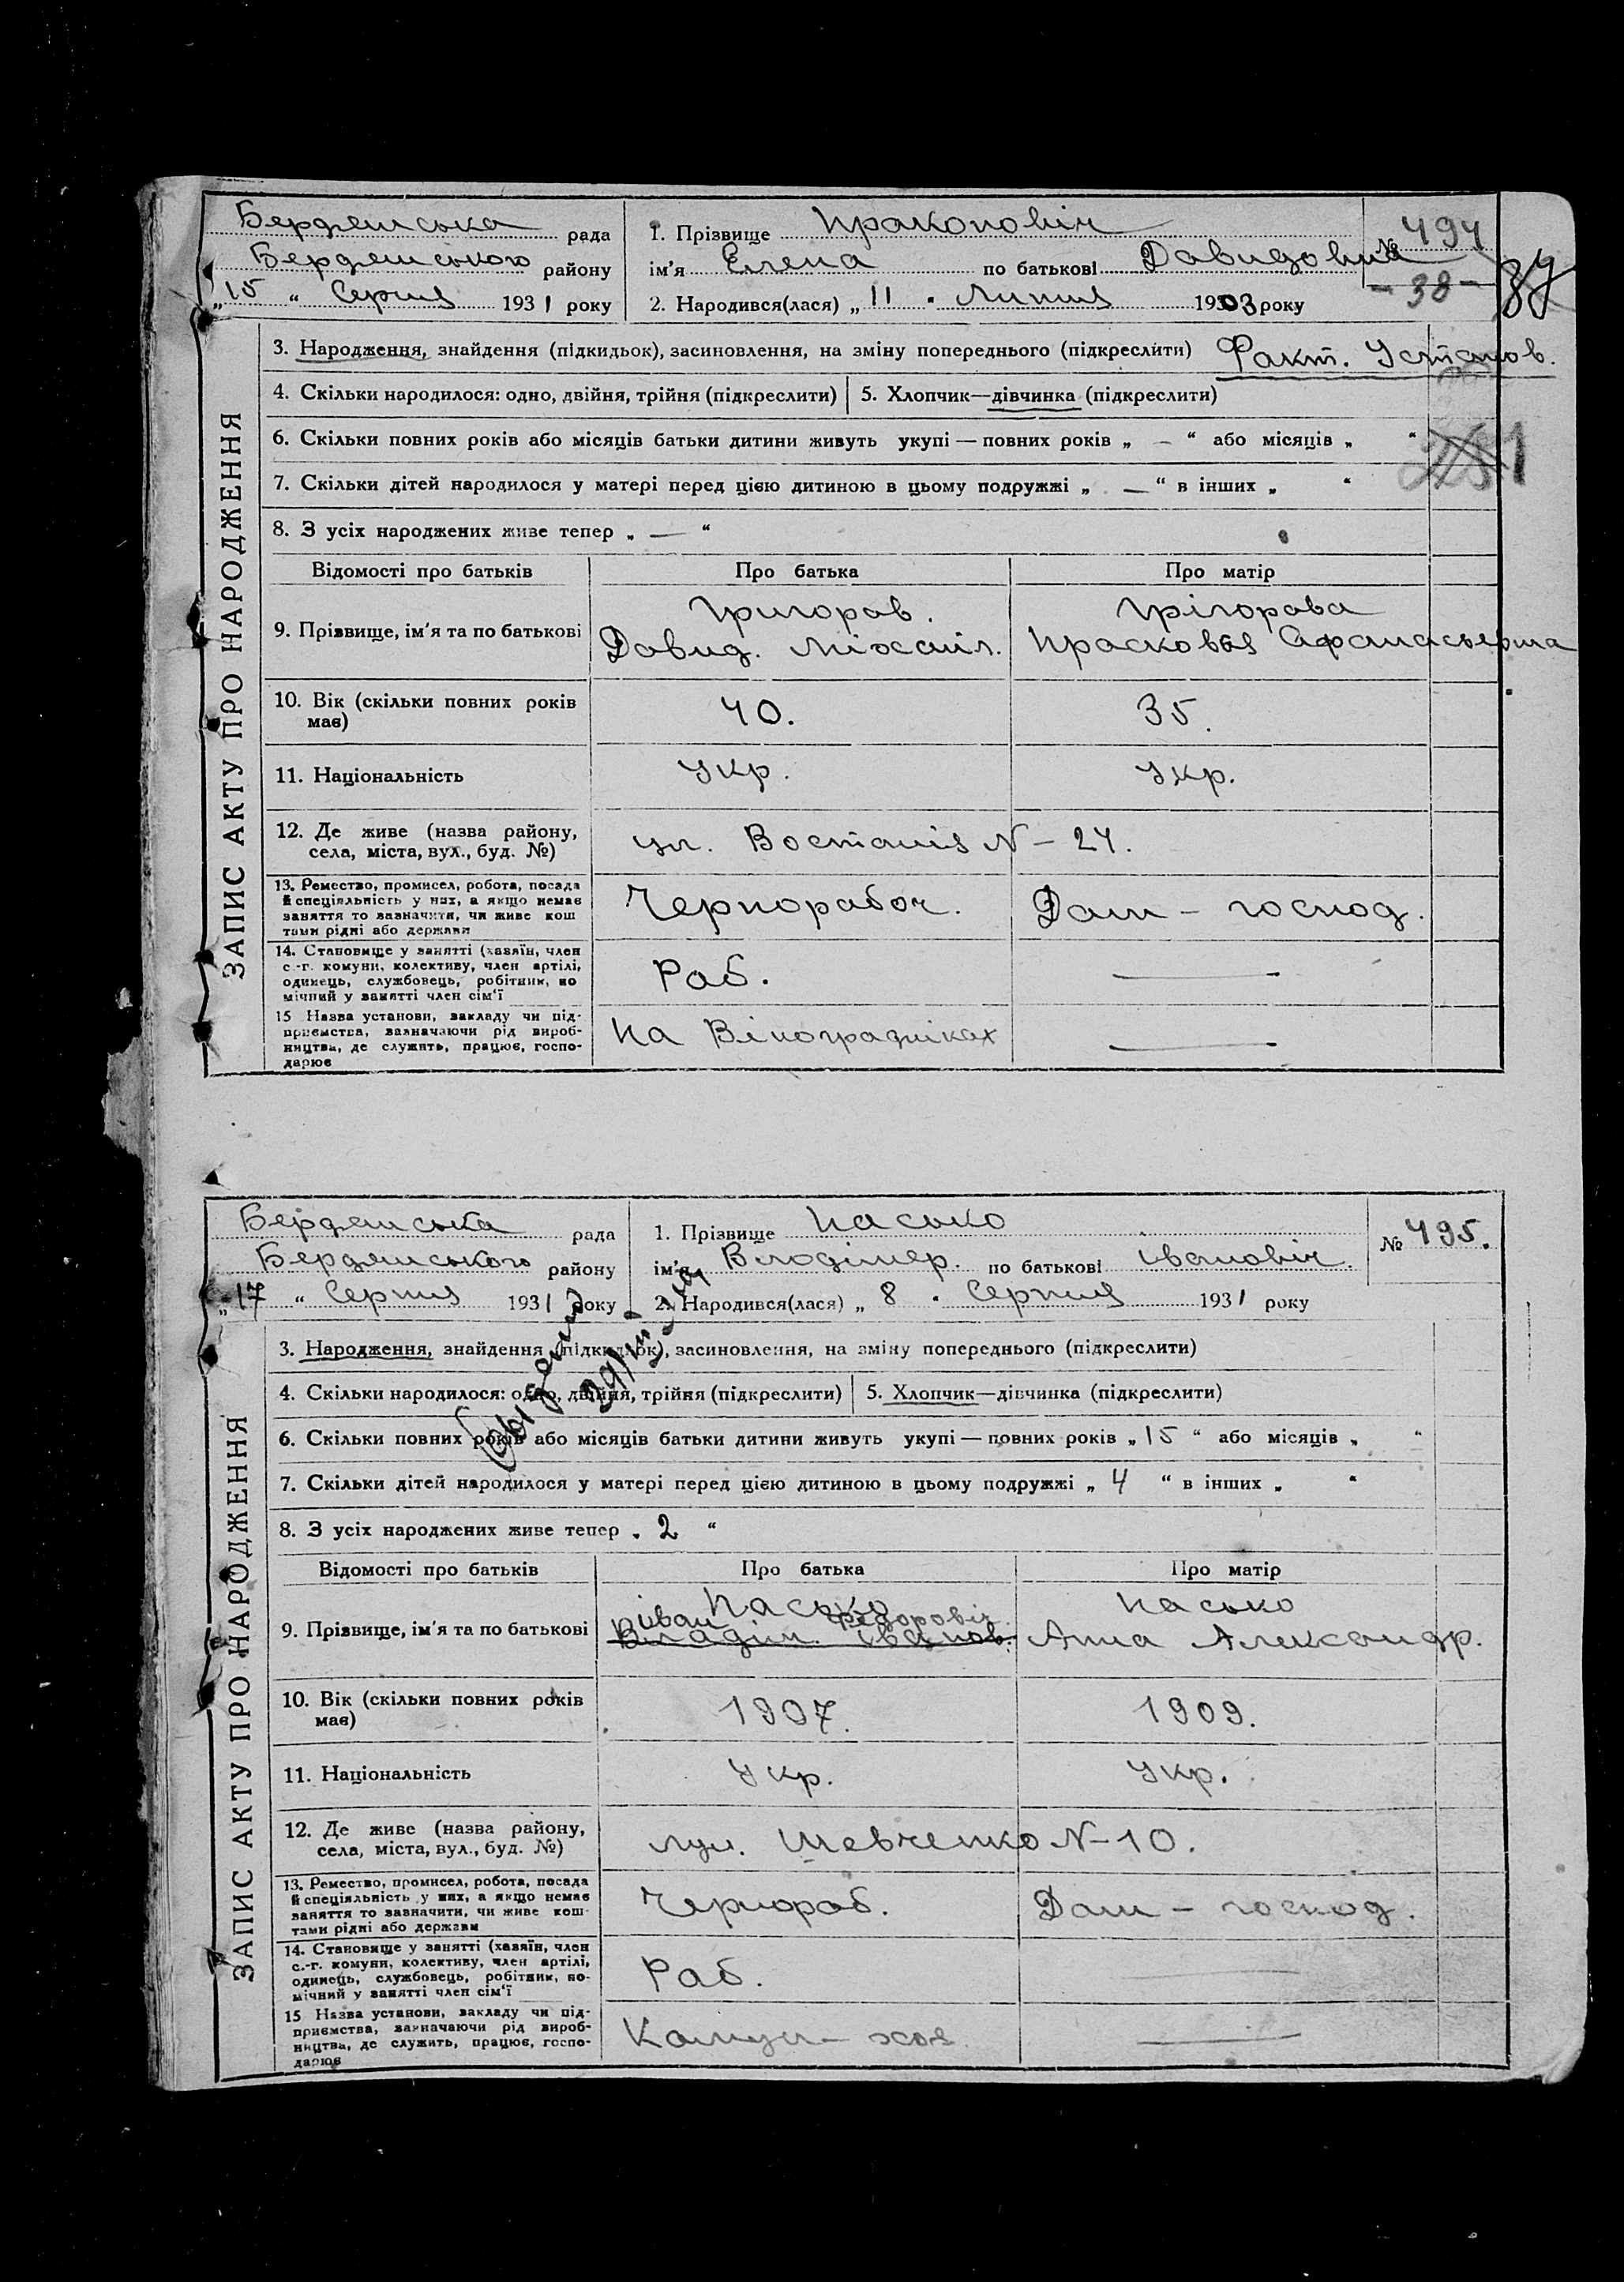 Бердянська рада
Бердянського району
„15 “ Серпня 1931 року
1. Прізвище Пракоповіч
ім'я Елена по батькові Давидовна
2. Народився(лася) „ 11 „ Липня 1903 року
№ 494
- 38 -
ЗАПИС АКТУ ПРО НАРОДЖЕННЯ
3. Народження, знайдення (підкидьок), засиновлення, на зміну попереднього (підкреслити) Факт. Установ.
4. Скільки народилося: одно, двійня, трійня (підкреслити) 5. Хлопчик—дівчинка (підкреслити)
6. Скільки повних років або місяців батьки дитини живуть укупі — повних років „ — “ або місяців „ “
7. Скільки дітей народилося у матері перед цією дитиною в цьому подружжі „ — “ в інших „ “
8. З усіх народжених живе тепер „ — “
Відомості про батьків Про батька Про матір
9. Прізвище, ім'я та по батькові
Григоров.
Давид. Міхайл.
Грігорова
Прасковья Афанасьевна
10. Вік (скільки повних років має) 40. 35.
11. Національність Укр. Укр.
12. Де живе (назва району,
села, міста, вул., буд. №)
ул. Востанія N – 24.
13. Ремество, промисел, робота, посада
й спеціяльність у них, а якщо немає
заняття то зазначити, чи живе кош
тами рідні або держави
Чернорабоч. Дом – господ.
14. Становище у занятті (хазяїн, член
с.-г. комуни, колективу, член артілі,
одинець, службовець, робітник, по
мічний у занятті член сім'ї
Раб. —
15 Назва установи, закладу чи під-
приємства, зазначаючи рід вироб-
ництва, де служить, працює, госпо-
дарює
На Віноградніках —
Бердянська рада
Бердянського району
„17 “ Серпня 1931 року
1. Прізвище Пасько
ім'я Володімер. по батькові Іванович.
2. Народився(лася) „ 8 „ Серпня 1931 року
№ 495.
ЗАПИС АКТУ ПРО НАРОДЖЕННЯ
3. Народження, знайдення (підкидьок), засиновлення, на зміну попереднього (підкреслити)
4. Скільки народилося: одно, двійня, трійня (підкреслити) 5. Хлопчик—дівчинка (підкреслити)
6. Скільки повних років або місяців батьки дитини живуть укупі — повних років „ 15 “ або місяців „ “
7. Скільки дітей народилося у матері перед цією дитиною в цьому подружжі „ 4 “ в інших „ “
8. З усіх народжених живе тепер „ 2 “
Відомості про батьків Про батька Про матір
9. Прізвище, ім'я та по батькові
Пасько
Іван Федоровіч
Владім. Іванов.
Пасько
Анна Александр.
10. Вік (скільки повних років має) 1907. 1909.
11. Національність Укр. Укр.
12. Де живе (назва району,
села, міста, вул., буд. №)
Шевченко N – 10.
13. Ремество, промисел, робота, посада
й спеціяльність у них, а якщо немає
заняття то зазначити, чи живе кош-
тами рідні або держави
Чернораб. Дом – господ.
14. Становище у занятті (хазяїн, член
с.-г. комуни, колективу, член артілі,
одинець, службовець, робітник, по-
мічний у занятті член сім'ї
Раб. —
15 Назва установи, закладу чи під-
приємства, зазначаючи рід вироб-
ництва, де служить, працює, госпо-
дарює
Комун – хоз. —